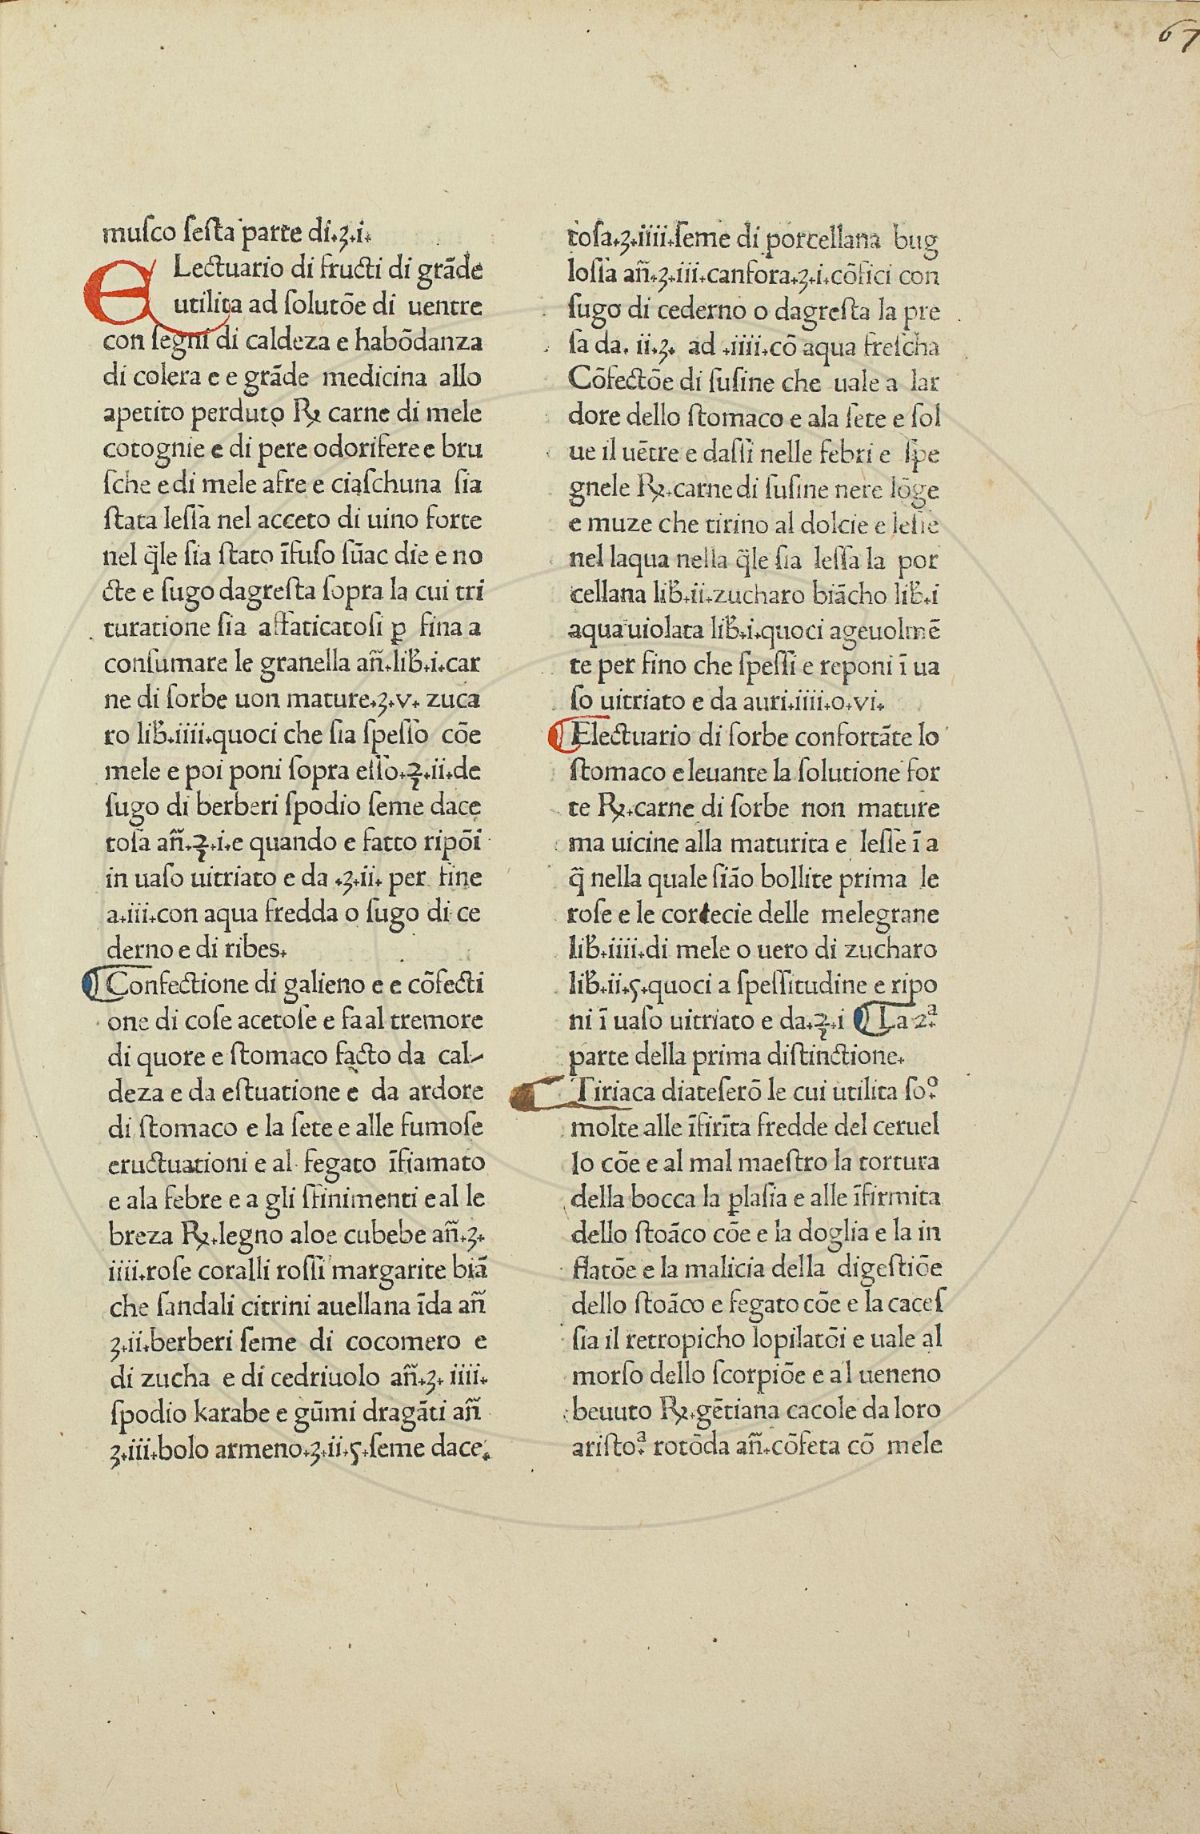 67
musco sesta parte di.ʒ.i.
ELectuario di fructi di grāde
utilita ad solutōe di uentre
con segni di caldeza e habōdanza
di colera e e grāde medicina allo
apetito perduto ℞ carne di mele
cotognie e di pere odorifere e bru
sche e di mele afre e ciaschuna sia
stata lessa nel acceto di uino forte
nel q̄le sia stato īfuso sūac die e no
cte e sugo dagresta sopra la cui tri
turatione sia affaticatosi ꝑ fina a
consumare le granella añ.lib̃.i.car
ne di sorbe uon mature.ʒ.v. zuca
ro lib̃.iiii.quoci che sia spesso cōe
mele e poi poni sopra esso.℥.ii.de
sugo di berberi spodio seme dace
tosa añ.℥.i.e quando e facto ripōi
in uaso uitriato e da .ʒ.ii. per fine
a.iii.con aqua fredda o sugo di ce
derno e di ribes.
Confectione di galieno e e cōfecti
one di cose acetose e fa al tremore
di quore e stomaco facto da cal-
deza e da estuatione e da ardore
di stomaco e la sete e alle fumose
eructuationi e al fegato īfiamato
e ala febre e a gli stinimenti e al le
breza ℞.legno aloe cubebe añ.ʒ.
iiii.rose coralli rossi margarite biā
che sandali citrini auellana īda añ
ʒ.ii.berberi seme di cocomero e
di zucha e di cedriuolo añ.ʒ. iiii.
spodio karabe e gūmi dragāti añ
ʒ.iii.bolo armeno.ʒ.ii.ꝭ.seme dace.
tosa.ʒ.iiii.seme di porcellana bug
lossa añ.ʒ.iii.canfora.ʒ.i.cōfici con
sugo di cederno o dagresta la pre
sa da. ii.ʒ. ad .iiii.cō aqua frescha
Cōfectōe di susine che uale a lar
dore dello stomaco e ala sete e sol
ue il uētre e dassi nelle febri e spe
gnele ℞.carne di susine nere lōge
e muze che tirino al dolcie e lesse
nel laqua nella q̄le sia lessa la por
cellana lib̃.ii.zucharo biācho lib̃.i
aqua uiolata lib̃.i.quoci ageuolmē
te per fino che spessi e reponi ī ua
so uitriato e da auri.iiii.o.vi.
Electuario di sorbe confortāte lo
stomaco e leuante la solutione for
te ℞.carne di sorbe non mature
ma uicine alla maturita e lesse ī a
q̄ nella quale siāo bollite prima le
rose e le cortecie delle melegrane
lib̃.iiii.di mele o uero di zucharo
lib̃.ii.ꝭ.quoci a spessitudine e ripo
ni ī uaso uitriato e da.℥.i La 2.ª
parte della prima distinctione.
Tiriaca diateserō le cui utilita so.º
molte alle īfirīta fredde del ceruel
lo cōe e al mal maestro la tortura
della bocca la ꝑlasia e alle īfirmita
dello stoāco cōe e la doglia e la in
flatōe e la malicia della digestiōe
dello stoāco e fegato cōe e la caces
sia il retropicho lopilatōi e uale al
morso dello scorpiōe e al ueneno
beuuto ℞.gētiana cacole da loro
aristo.ª rotōda añ.cōfeta cō mele